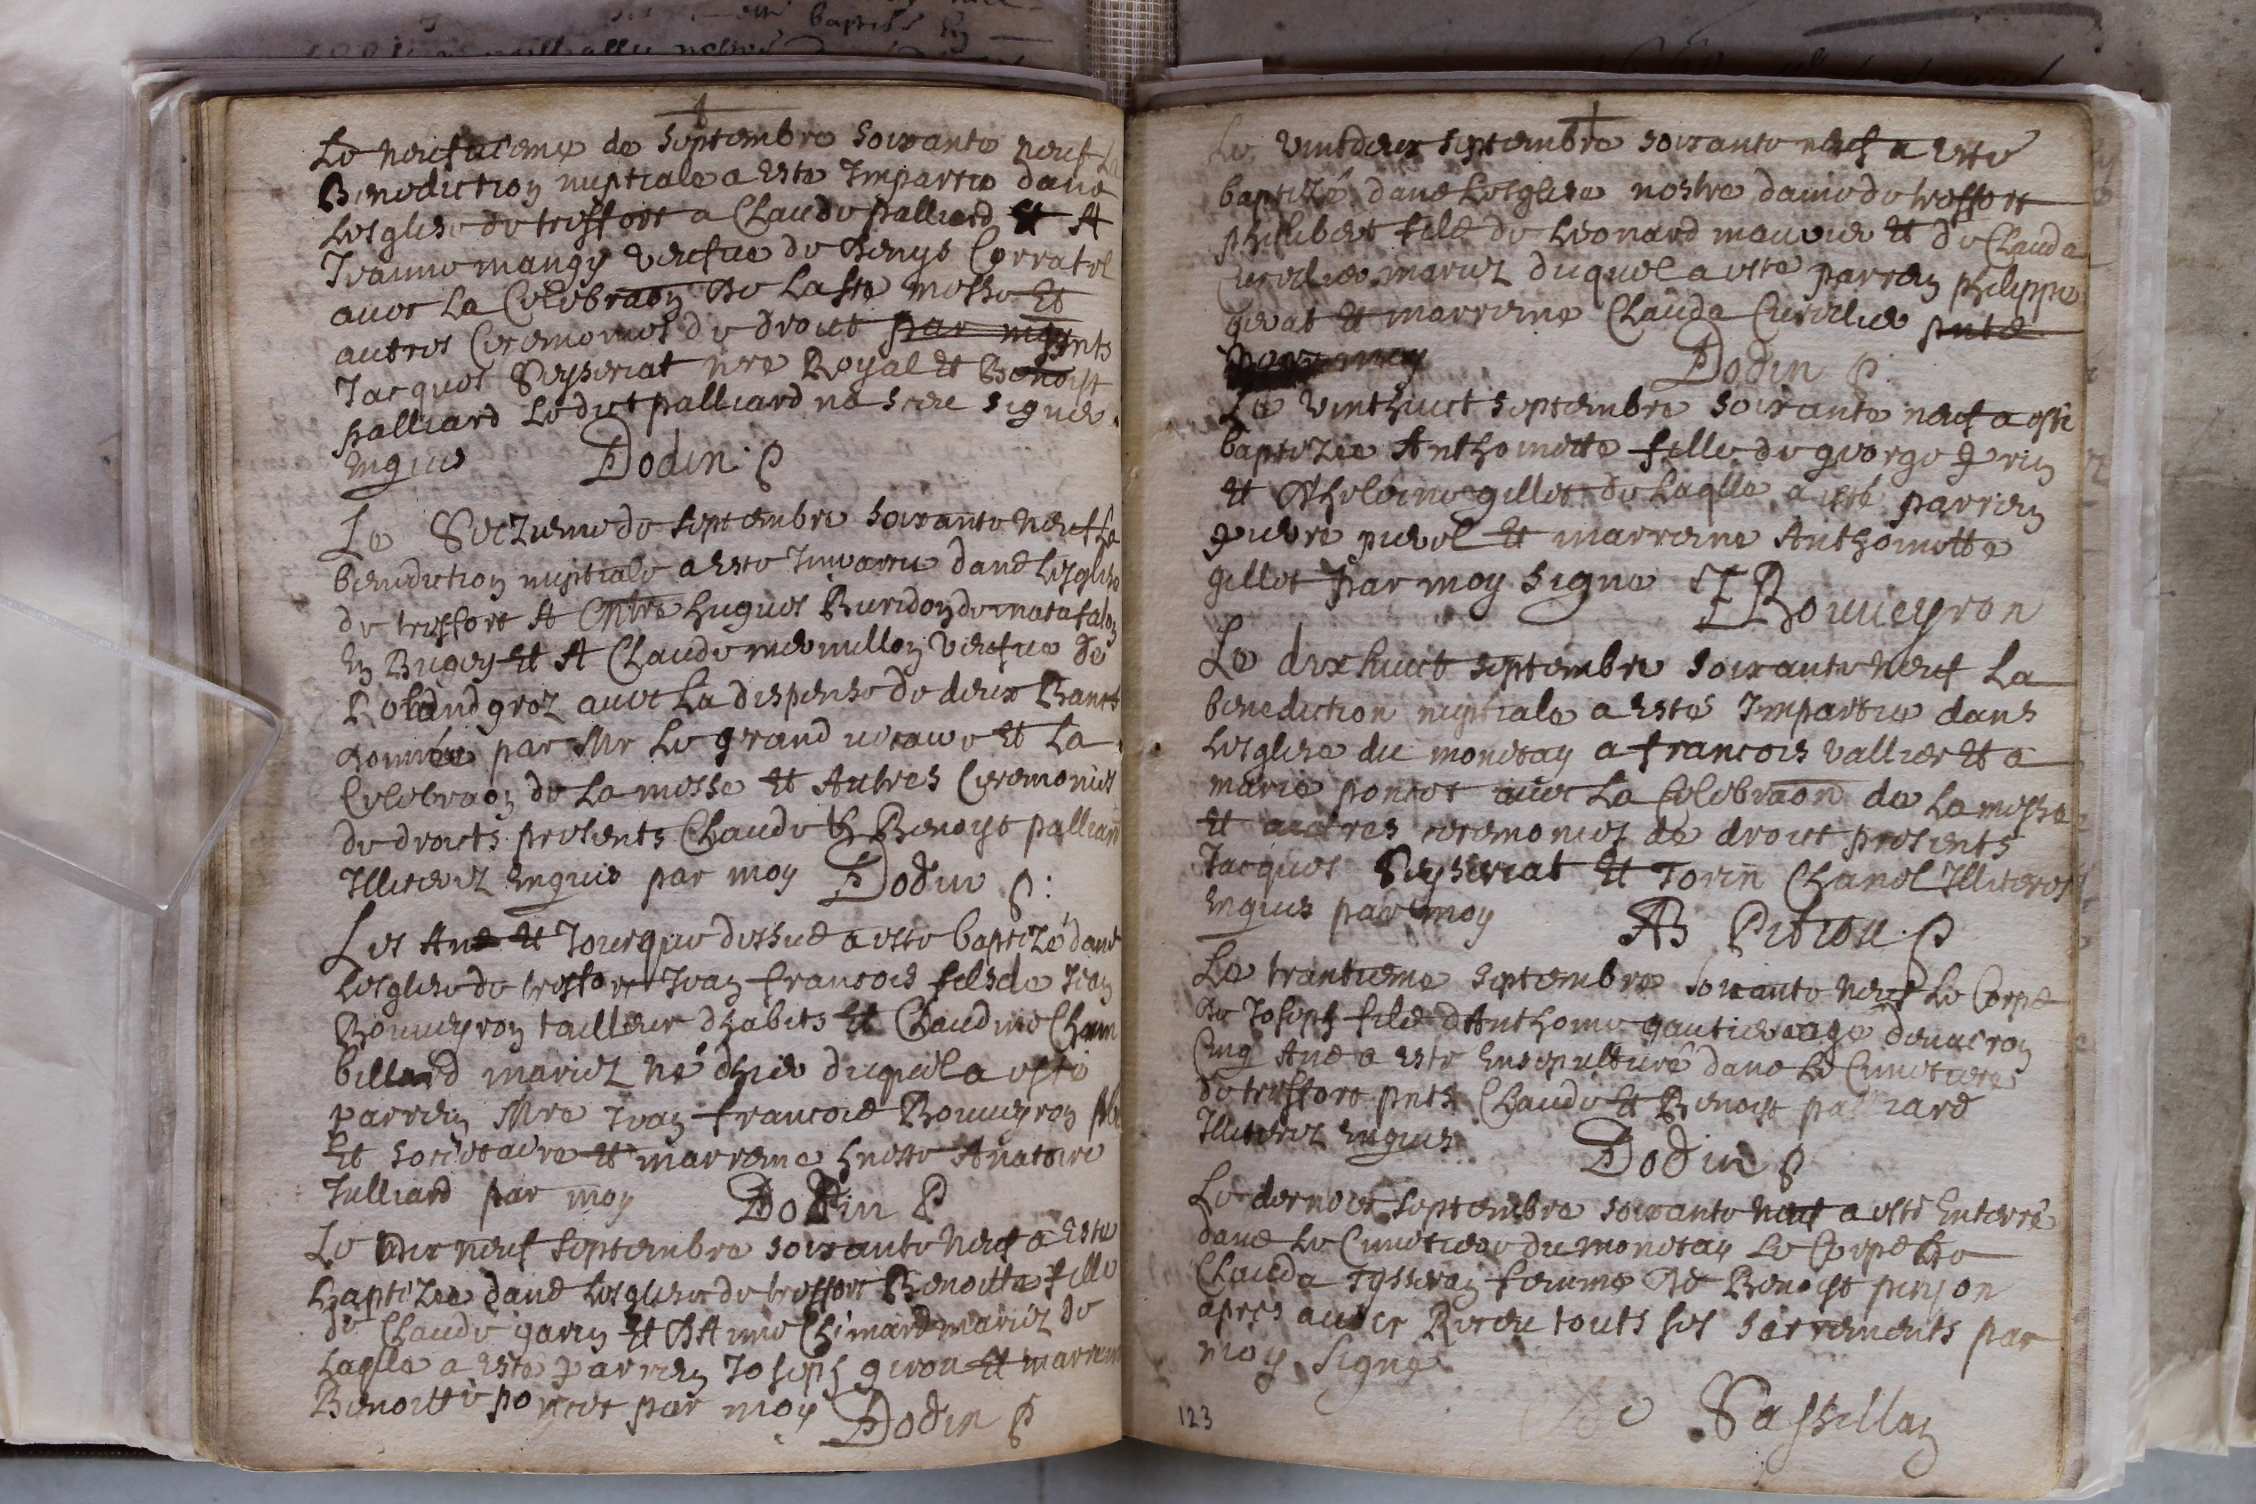 Le neufuieme de septembre soixante neuf La
Benediction nuptiale a este Impartie dans
Lesglise de treffort a Claude palliard Et A
Jeanne mangy veufue de Denys Corratel
auec La Celebraon De La ste messe Et
autres Ceremonies de droict par moy pnts
Jacques Seyseriat nre Royal Et Benoist
palliard Ledict palliard na sceu signer
enquis Dodin
Le Seizieme de septembre soixante neuf La
benediction nuptiale a este Impartie dans Lesglise
de treffort A Hugues Buridon de matafalon
En Bugey Et A Claude mermillon veufue De
Roland groz auec La dispense de deux Bancs
donnée par Mr Le grand vicaire Et La
Celebraon de La messe Et Autres Ceremonies
de droicts presents Claude Et Benoist palliard
Illiterez enquis par moy Dodin
Les An Et Jour que dessus a este baptizé dans
Lesglise de treffort Jean francois fils de Jean
Bouueyron tailleur dhabits Et Claudine Cham
billard mariez né dhier duquel a este
parrein Mre Jean francois Bouueyron pbre
Et societaire Et marreine hneste Anatoire
Julliard par moy Dodin
Le dix neuf septembre soixante neuf a este
baptizée dans Lesglise de treffort Benoitte fille
de Claude garin Et DAnne Chimard mariez de
Laqlle a este parrein Joseph giron Et marreine
Benoitte poncet par moy Dodin
Le vintdeux septembre soixante neuf a este
baptizé dans Lesglise nostre dame de treffort
philibert fils de Leonard mounier Et de Clauda
Curvilier mariez duquel a este parrein philippe
gerat Et marreine Clauda Curvilier pnts
par moy Dodin
Le vinthuict septembre soixante neuf a este
baptizée Anthoinette fille de george perin
Et Dheleine gillet de Laqlle a esté parrein
pierre pieuel Et marreine Anthoinette
gillet par moy signe JF Bouueyron
Le dixhuict septembre soixante neuf La
benediction nuptiale a estés Impartie dans
Lesglise du monetay a francois vallier Et a
marie poncet auec La Celebraon de La messe
Et autres ceremonies de droict presents
Jacques Seyseriat Et Jovin Chanel Illiteres
enquis par moy AB Pitiou
Le trantieme septembre soixante neuf Le Corps
de Joseph fils dAnthoine gautier agé denuiron
Cinq Ans a este Ensepulturé dans Le Cimetiere
de treffort pnts Claude Et Benoist palliard
Illiterez enquis Dodin
Le dernier septembre soixante neuf a esté Enterré
dans Le Cimetiere du monetay Le Corps De
Clauda Tysseran femme De Benoist pinjon
apres auoir Receu touts ses sacrements par
moy signe
Sassillan
123